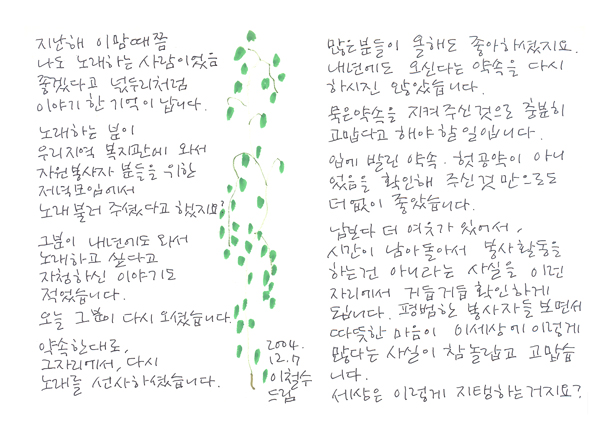 지난해 이맘때쯤
나도 노래하는 사람이었음
좋겠다고 넋두리처럼
이야기 한 기억이 납니다.
노래하는 분이
우리지역 복지관에 와서
자원봉사자 분들을 위한
저녁모임에서
노래불러 주셨다고 했지요?
그분이 내년에도 와서
노래하고 싶다고
자청하신 이야기도
적었습니다.
오늘 그분이 다시 오셨습니다.
약속한대로,
그자리에서, 다시
노래를 선사하셨습니다.
2004.
12.7
이철수
드림
많은분들이 올해도 좋아하셨지요.
내년에도 오신다는 약속을 다시
하시진 않았습니다.
묵은약속을 지켜주신것으로 충분히
고맙다고 해야 할 일입니다.
입에 발린 약속. 헛공약이 아니
었음을 확인해 주신것 만으로도
더없이 좋았습니다.
남보다 더 여유가 있어서,
시간이 남아돌아서 봉사활동을
하는건 아니라는 사실을 이런
자리에서 거듭거듭 확인하게
됩니다. 평범한 봉사자들 보면서
따뜻한 마음이 이세상에 이렇게
많다는 사실이 참 놀랍고 고맙습
니다.
세상은 이렇게 지탱하는거지요?